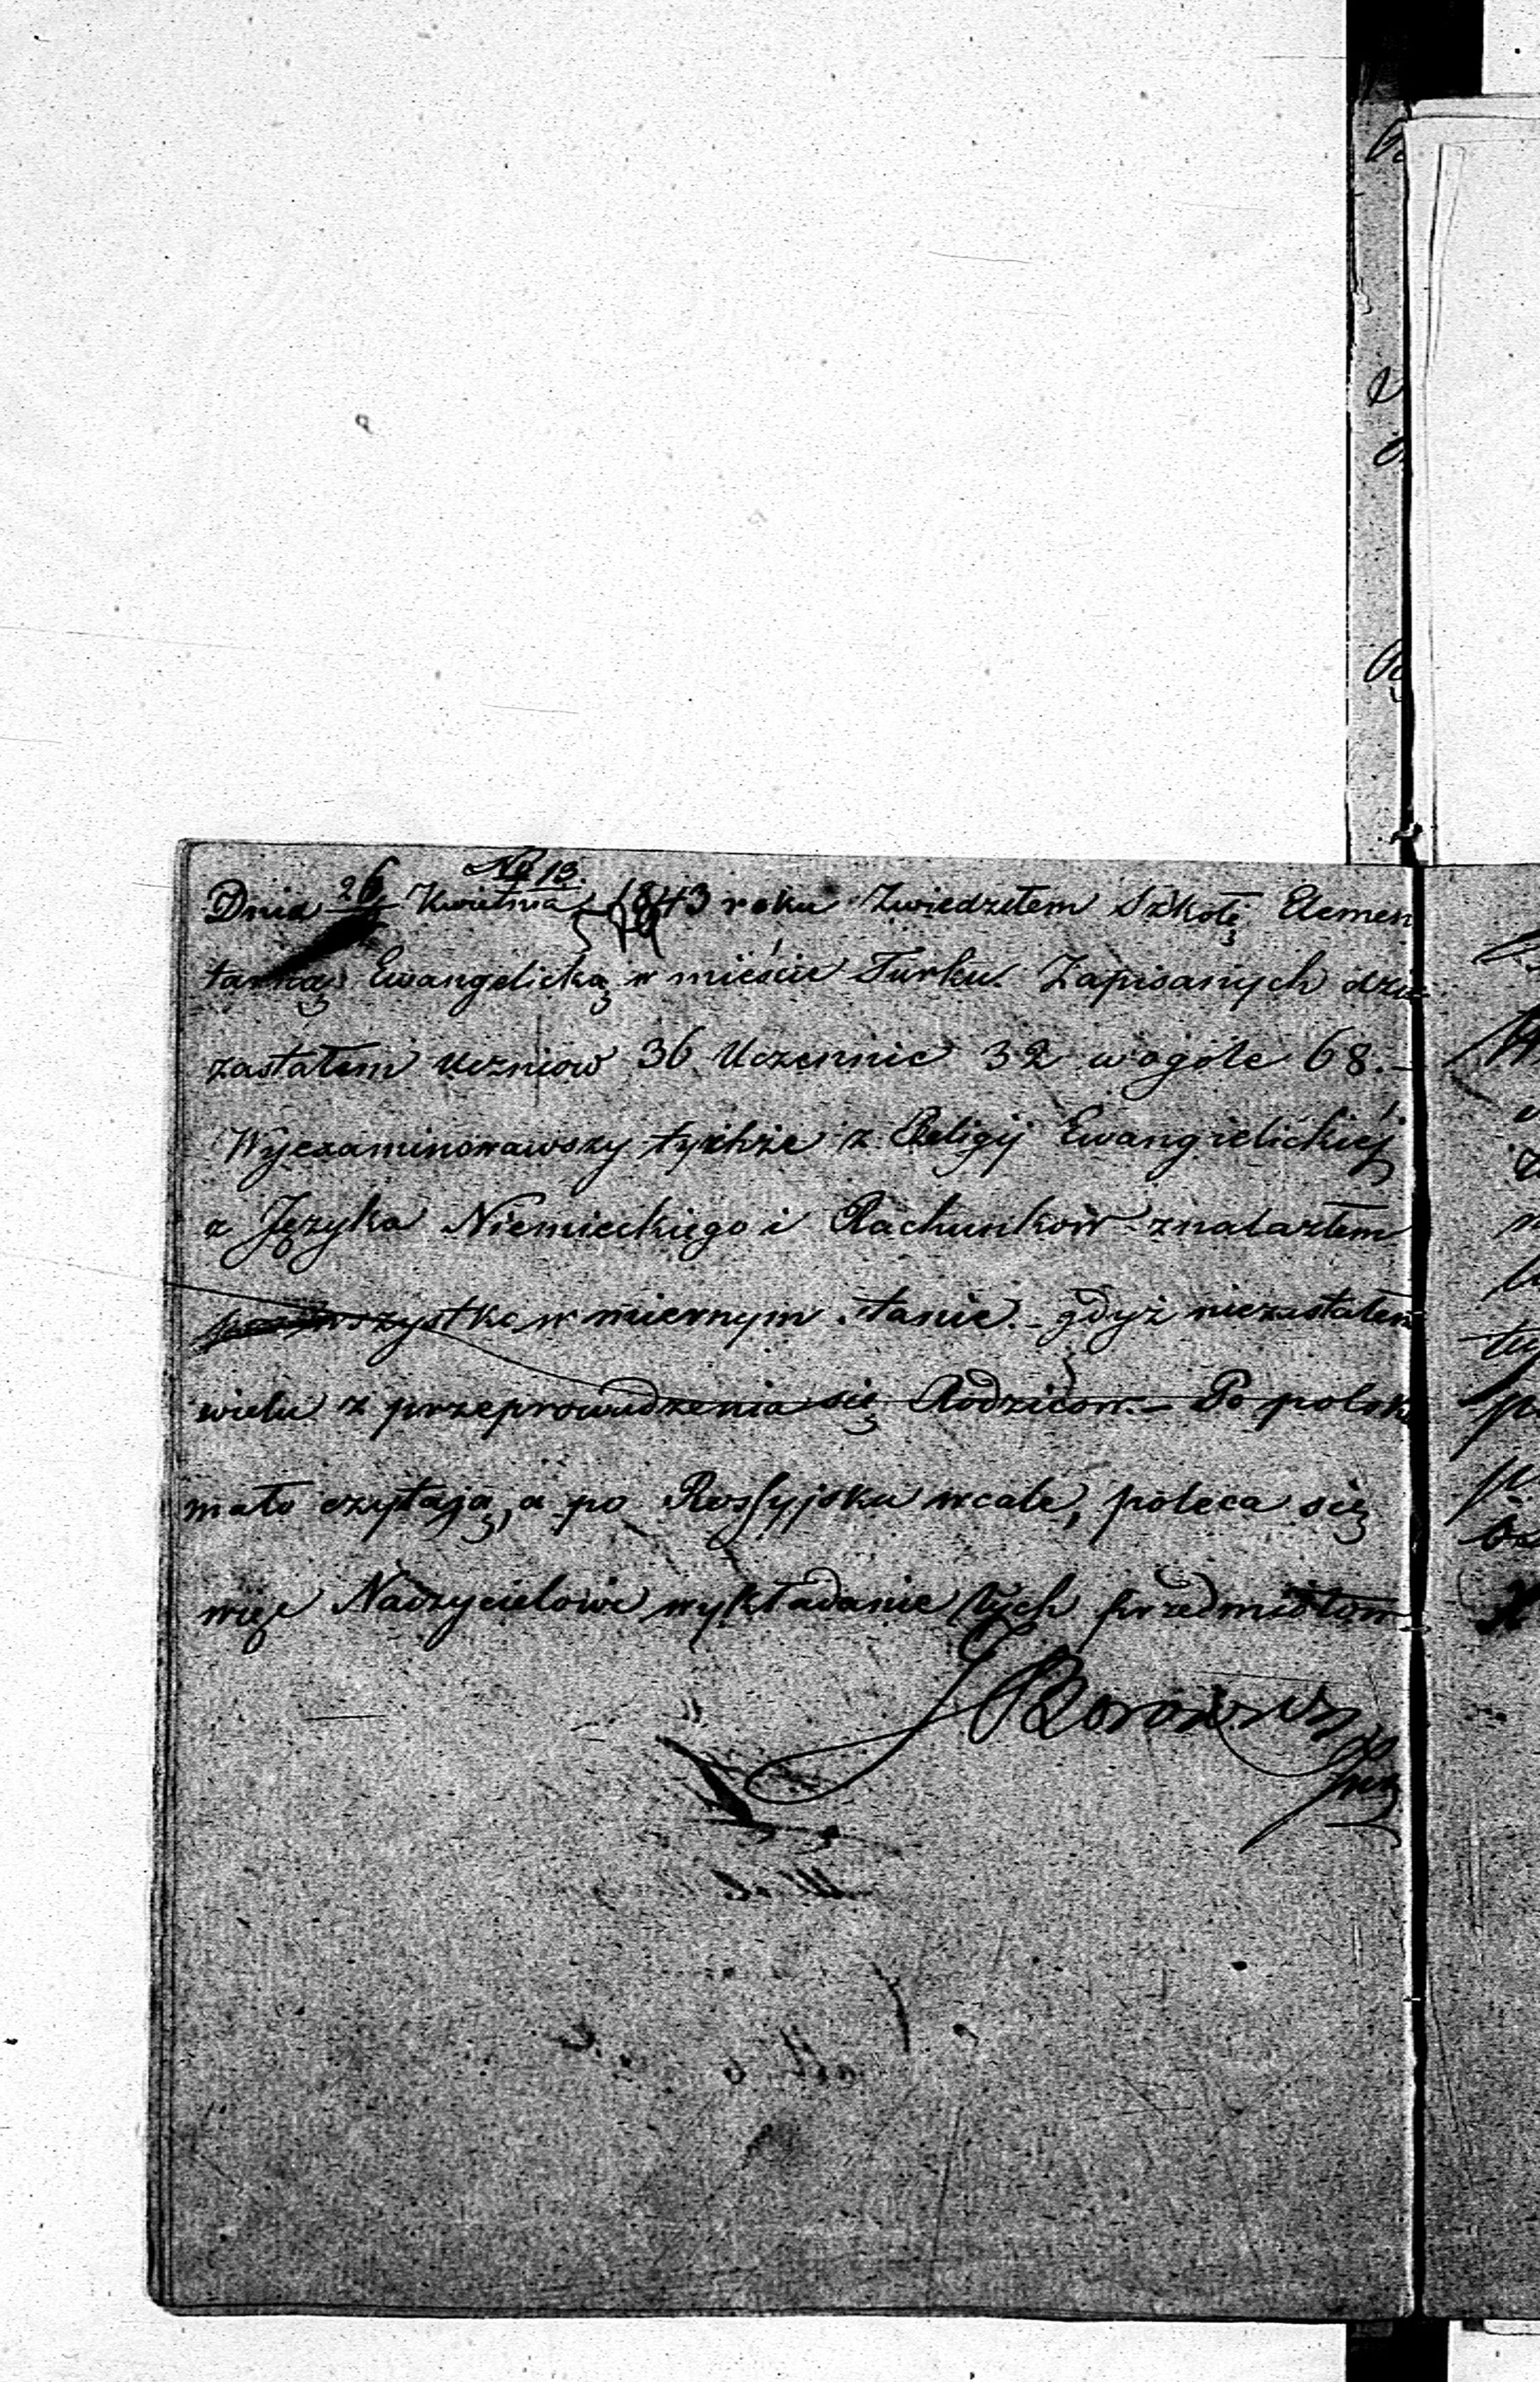 No 13
Dnia 26 Kwietnia 1843 roku Zwiedziłem Szkołę Elemen
tarną Ewangelicką w mieście Turku. Zapisanych dzie
zastałem Uczniow 36 Uczennic 32 wogóle 68.—
Wyexaminowawszy tychże z Religij Ewangielickiéj
z Języka Niemieckiego i Rachunków znalazłem
wszystko w miernym stanie.— gdyż niezastałem
wielu z przeprowadzenia się Rodziców.— Po polsk
mało czytają, a po Rossyjsku wcale, poleca się
więc Nauczycielowi wykładanie tych przedmiotów